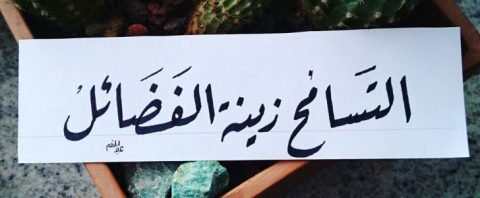 التَسَامح زينة الفَضَائلْ